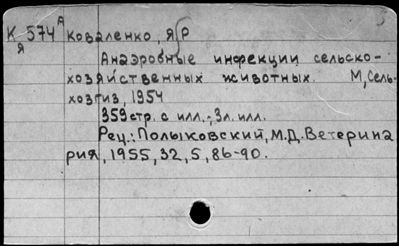 К 574 А Коваленко, Я Р
Я
Анаэробные инфекции сельско-
хозяйственных животных. М, Сель-
хозгиз, 1954
359 стр. с илл.; 3л. илл.
Рец.: Полыковский, М.Д. Ветерина
рия, 1955, 32, 5, 86-90.